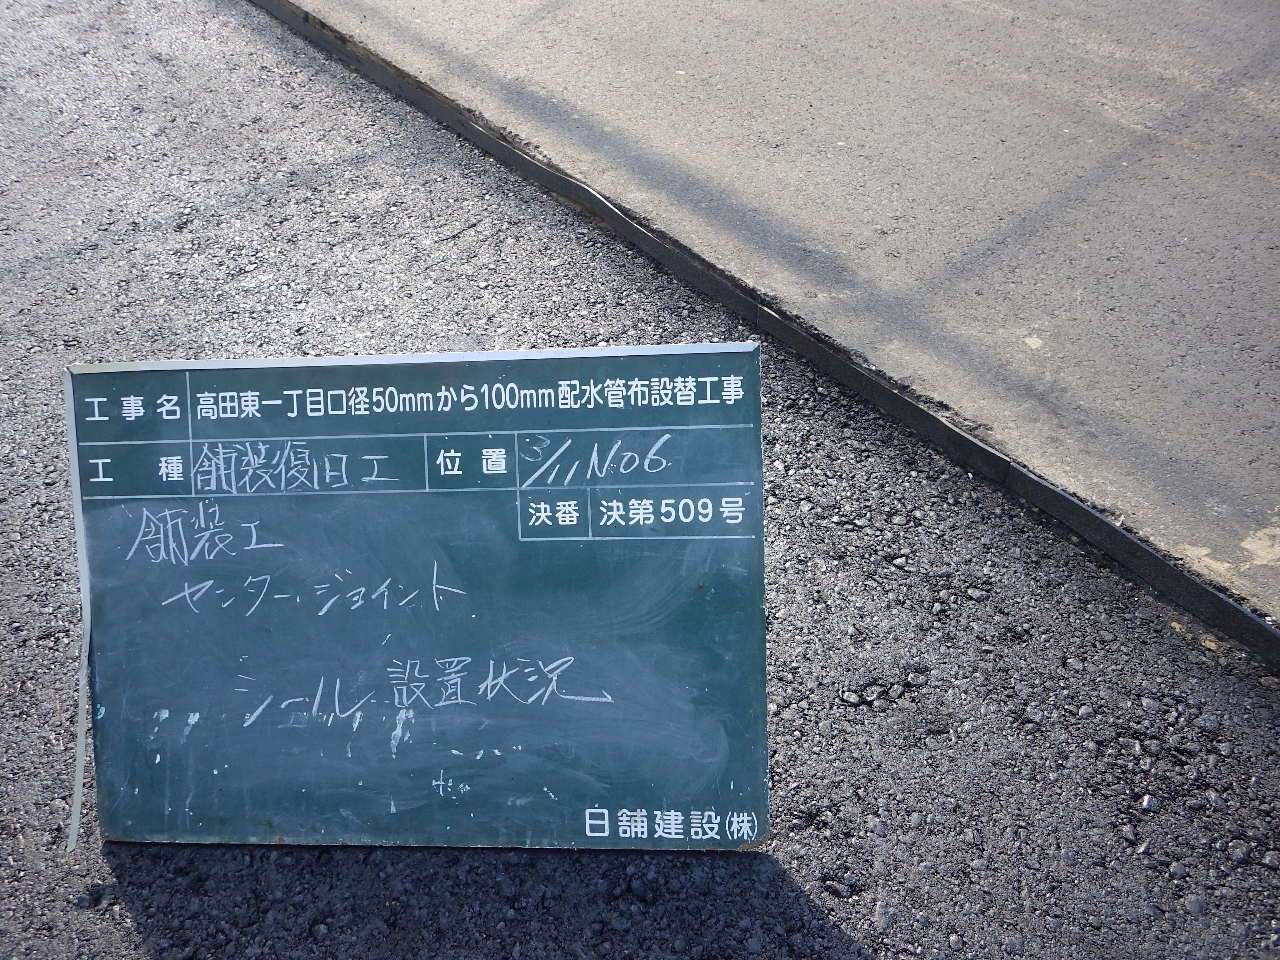 工事名 高田東一丁目口径50mmから100mm配水管布設替工事
工種 舗装復旧工 位置 3/11 No6
決番 決第509号
舗装工
センタージョイント
シール設置状況
日舗建設(株)